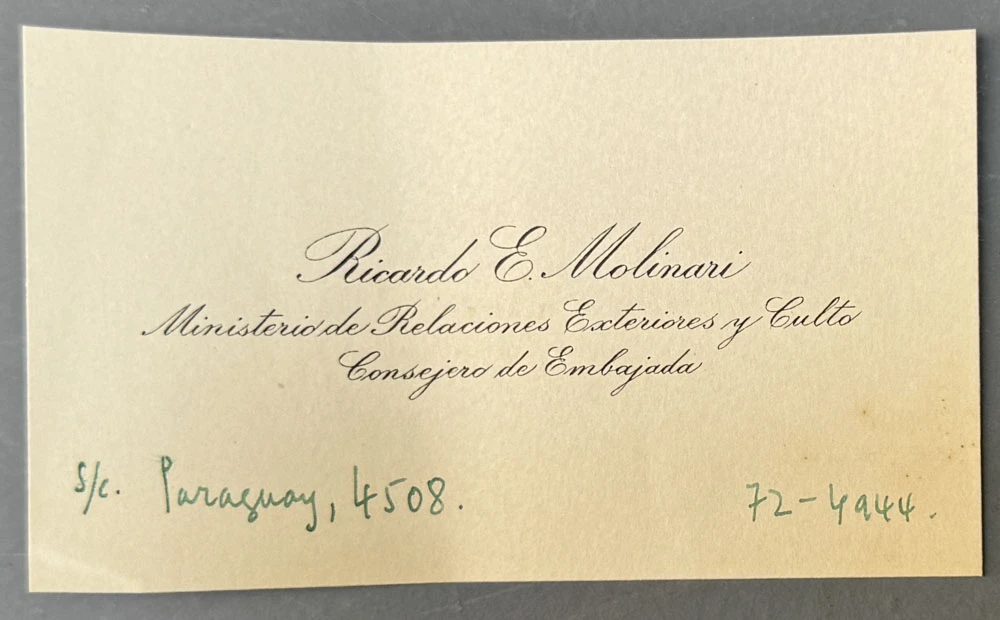 Ricardo E. Molinari
Ministerio de Relaciones Exteriores y Culto
Consejero de Embajada
s/c. Paraguay, 4508. 72-4944.